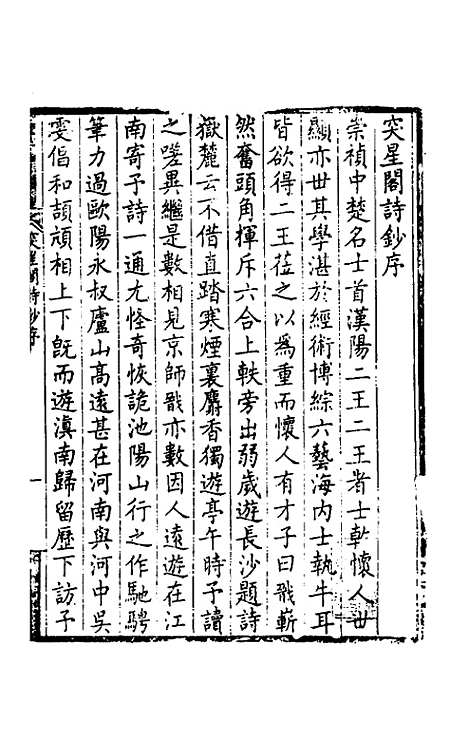 突星閣詩鈔序
崇禎中楚名士首漢陽二王二王者士乾懷人世
顯亦世其學湛於經術博綜六藝海内士執牛耳
皆欲得二王莅之以為重而懷人有才子曰戩嶄
然奮頭角揮斥六合上軼旁出弱歲遊長沙題詩
嶽麓云不借直踏寒煙裏麝香獨遊亭午時予讀
之嗟異繼是數相見京師戩亦數因人遠遊在江
南寄予詩一通尤怪奇恢詭池陽山行之作馳騁
筆力過歐陽永叔廬山高遠甚在河南與河中吳
雯倡和頡頏相上下既而遊滇南歸留歷下訪予
突星閣詩鈔序
一